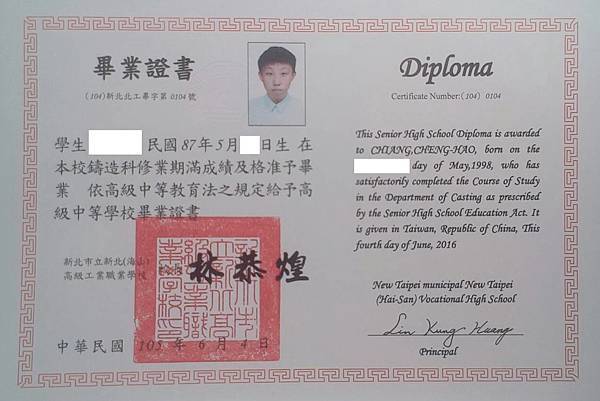 畢業證書
(104)新北北工畢字第0104號
學生 民國87年5月 日生 在
本校鑄造科修業期滿成績及格准予畢
業 依高級中等教育法之規定給予高
級中等學校畢業證書
新北市立新北(海山)
高級工業職業學校
林恭煌
中華民國 105 年 6 月 4 日
Diploma
Certificate Number:(104) 0104
This Senior High School Diploma is awarded
to CHIANG,CHENG-HAO, born on the
day of May,1998, who has
satisfactorily completed the Course of Study
in the Department of Casting as prescribed
by the Senior High School Education Act. It
is given in Taiwan, Republic of China, This
fourth day of June, 2016
New Taipei municipal New Taipei
(Hai-San) Vocational High School
Lin Kung Huang
Principal